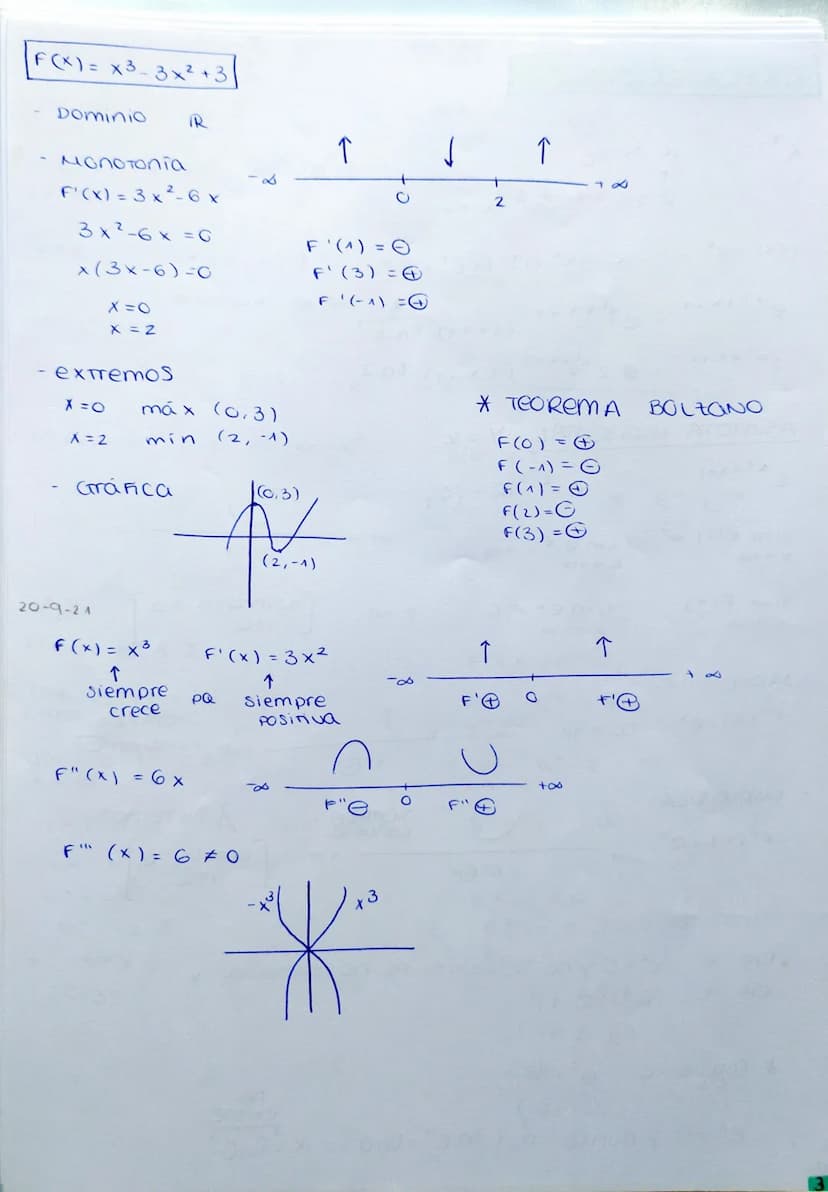 F(x) = x³ - 3x² + 3
- Dominio ℝ
- Monotonía
F'(x) = 3x² - 6x
3x² - 6x = 0
x(3x - 6) = 0
x = 0
x = 2
↑ ↓ ↑
-∞ 0 2 +∞
F'(1) = ⊖
F'(3) = ⊕
F'(-1) = ⊕
- extremos
x = 0 máx (0,3)
x = 2 mín (2,-1)
* TEOREMA BOLZANO
F(0) = ⊕
F(-1) = ⊖
F(1) = ⊕
F(2) = ⊖
F(3) = ⊕
- Gráfica
(0,3)
(2,-1)
20-9-21
F(x) = x³ F'(x) = 3x²
↑ ↑
siempre crece pq siempre positiva
↑ ↑
-∞ 0 +∞
F'⊕ F'⊕
F''(x) = 6x
∩ ∪
-∞ 0 +∞
F''⊖ F''⊕
F'''(x) = 6 ≠ 0
-x³ x³
3